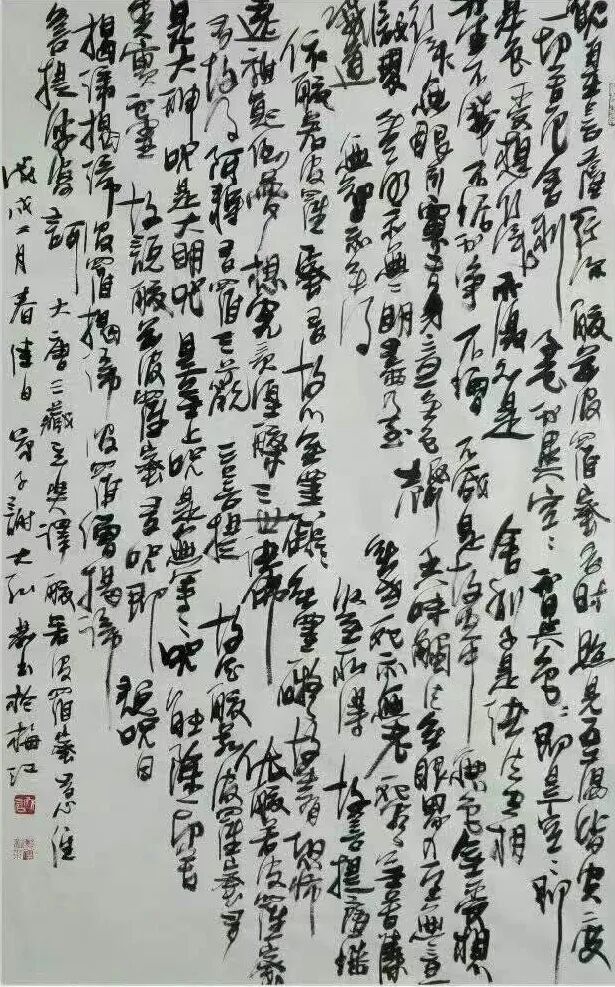 觀自在菩薩行深般若波羅蜜多時照見五蘊皆空度
一切苦厄舍利子色不異空空不異色色即是空空即
是色受想行識亦復如是舍利子是諸法空相
不生不滅不垢不淨不增不減是故空中無色無受想
行識無眼耳鼻舌身意無色聲香味觸法無眼界乃至無意
識界無無明亦無無明盡乃至無老死亦無老死盡無苦集
滅道無智亦無得以無所得故菩提薩埵
依般若波羅蜜多故心無罣礙無罣礙故無有恐怖
遠離顛倒夢想究竟涅槃三世諸佛依般若波羅蜜
多故得阿耨多羅三藐三菩提故知般若波羅蜜多
是大神咒是大明咒是無上咒是無等等咒能除一切苦
真實不虛故說般若波羅蜜多咒即說咒曰
揭諦揭諦波羅揭諦波羅僧揭諦
菩提薩婆訶 大唐三藏玄奘譯般若波羅蜜多心經
戊戌二月春佳日 弟子謝大 敬书於梅江